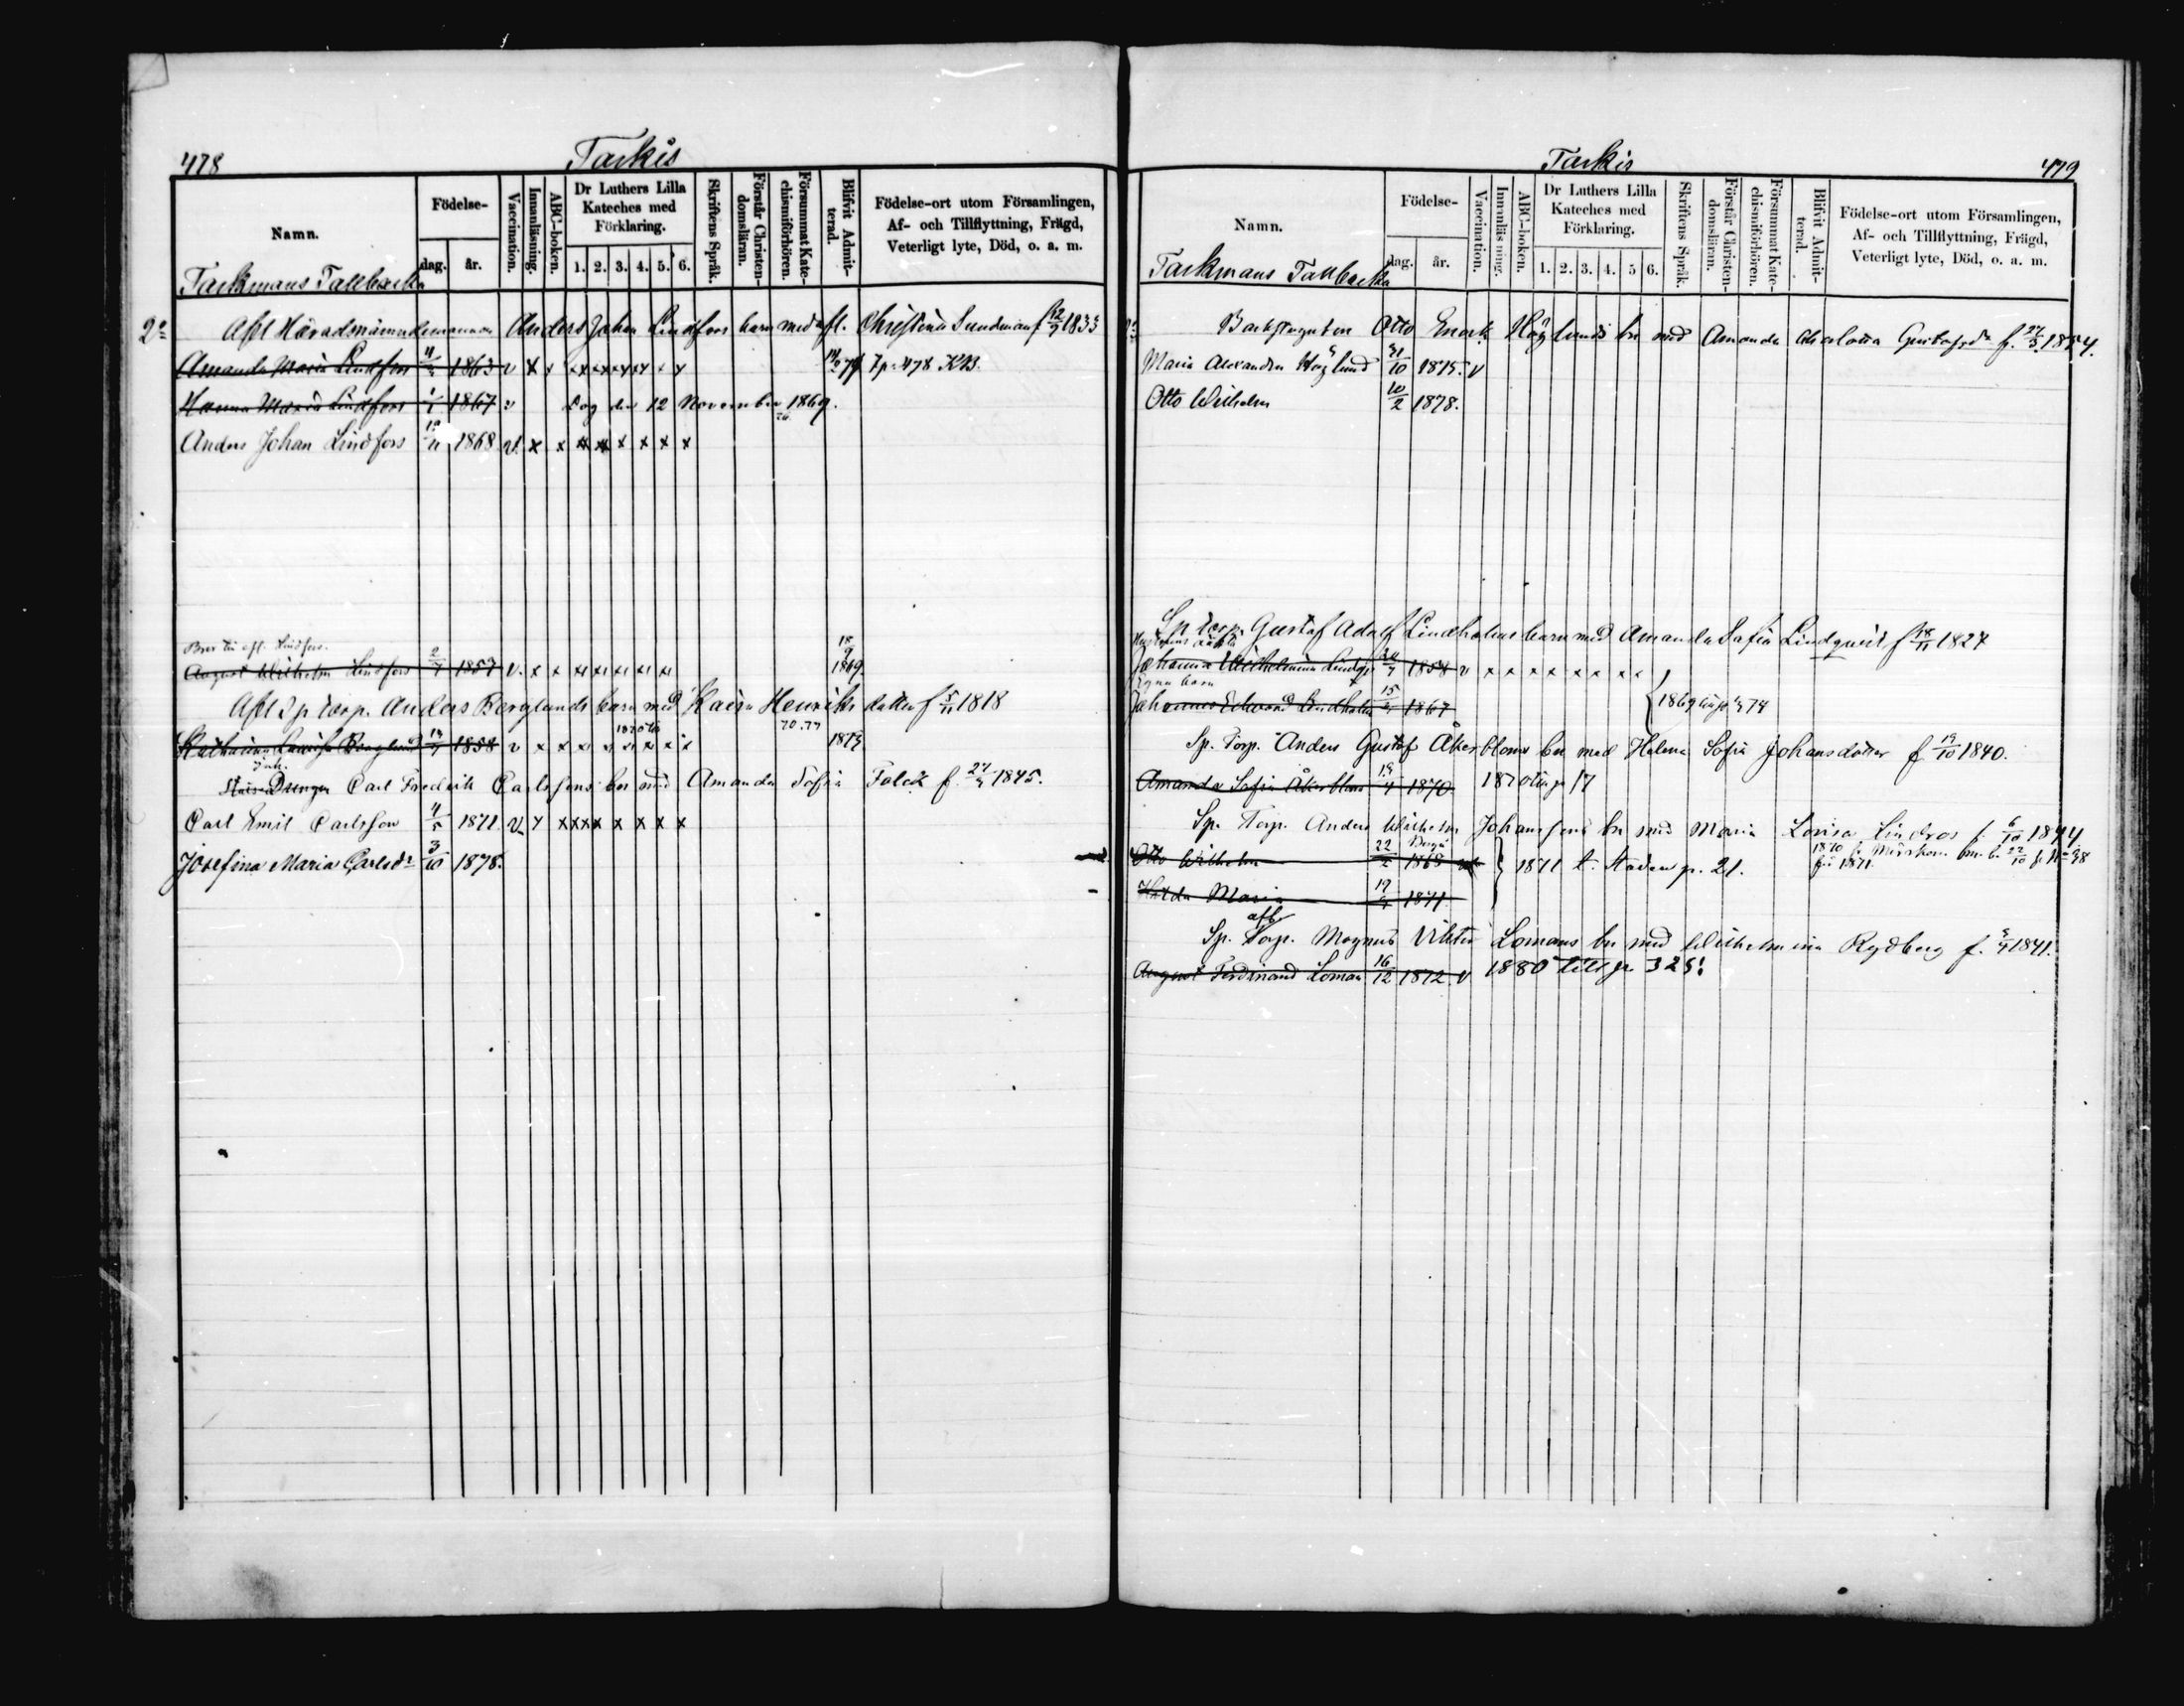 478
Tarkis
Namn.
Födelse-
dag.
år.
Vaccination.
Innanläsning.
ABC-boken.
Dr Luthers Lilla
Kateches med
Förklaring.
1. 2. 3. 4. 5. 6.
Skriftens Språk.
Förstår Christen-
domsläran.
Försummat Kate-
chismiförhören.
Blifvit Admit-
terad.
Födelse-ort utom Församlingen,
Af- och Tillflyttning, Frägd,
Veterligt lyte, Död, o. a. m.
Tarkmans Tallbacka
Anders Johan Lindfors barn med Christina Sundman f 1833
Amanda Maria Lindfors 1863 v x x x x x x x x p. 478 KB.
Hanna Maria Lindfors 1867 v Dog den 12 November 1869.
Anders Johan Lindfors 1868 v. x x x x x x x x
August Wilhelm Lindfors 2/7 1857 v. x x x x x x x x 1869
Afl Sp torp. Anders Berglunds barn med Kaisa Henriks dotter f 5/11 1818
Berglund 1858 v x x x x x x x 1875
Drengen Carl Fredrik Carlssons bn med Amanda Sofia Falck f. 1845.
Carl Emil Carlsson 4/5 1871 v x x x x x x x x x
Josefina Maria Carlsdr 3/10 1878.
Tarkis
479
Namn.
Födelse-
dag.
år.
Vaccination.
Innanläsning.
ABC-boken.
Dr Luthers Lilla
Kateches med
Förklaring.
1. 2. 3. 4. 5 6.
Skriftens Språk.
Förstår Christen-
domsläran.
Försummat Kate-
chismiförhören.
Blifvit Admit-
terad.
Födelse-ort utom Församlingen,
Af- och Tillflyttning, Frägd,
Veterligt lyte, Död, o. a. m.
Tarkmans Tallbacka
Otto Enock Höglunds bn med Amanda Charlotta f. 1854.
Maria Alexandra Höglund 31/10 1875. v
Otto Wilhelm 10/2 1878.
Sp torp. Gustaf Adolf Lindholms barn med Amanda Sofia Lindqvist f 18/11 1827
Johanna Wilhelmina 1854 v x x x x x x x x
Egna barn
Johannes Edvard Lindholm 1867
Sp. Torp. Anders Gustaf Åkerbloms bn med Helena Sofia Johansdotter f 19/10 1840.
Amanda Sofia Åkerblom 1870.
Sp. Torp. Anders Wilhelm Johanssons bn med Maria Lovisa Lindros f. 6/10 1844
Otto Wilhelm 1868 1871 t. Staden p. 21.
Hilda Maria 1871
Sp. Torp. Magnus Viktor Lomans bn med Wilhelmina Rydberg f. 1841.
August Ferdinand Loman 16/12 1872 v 1880 till p. 325!